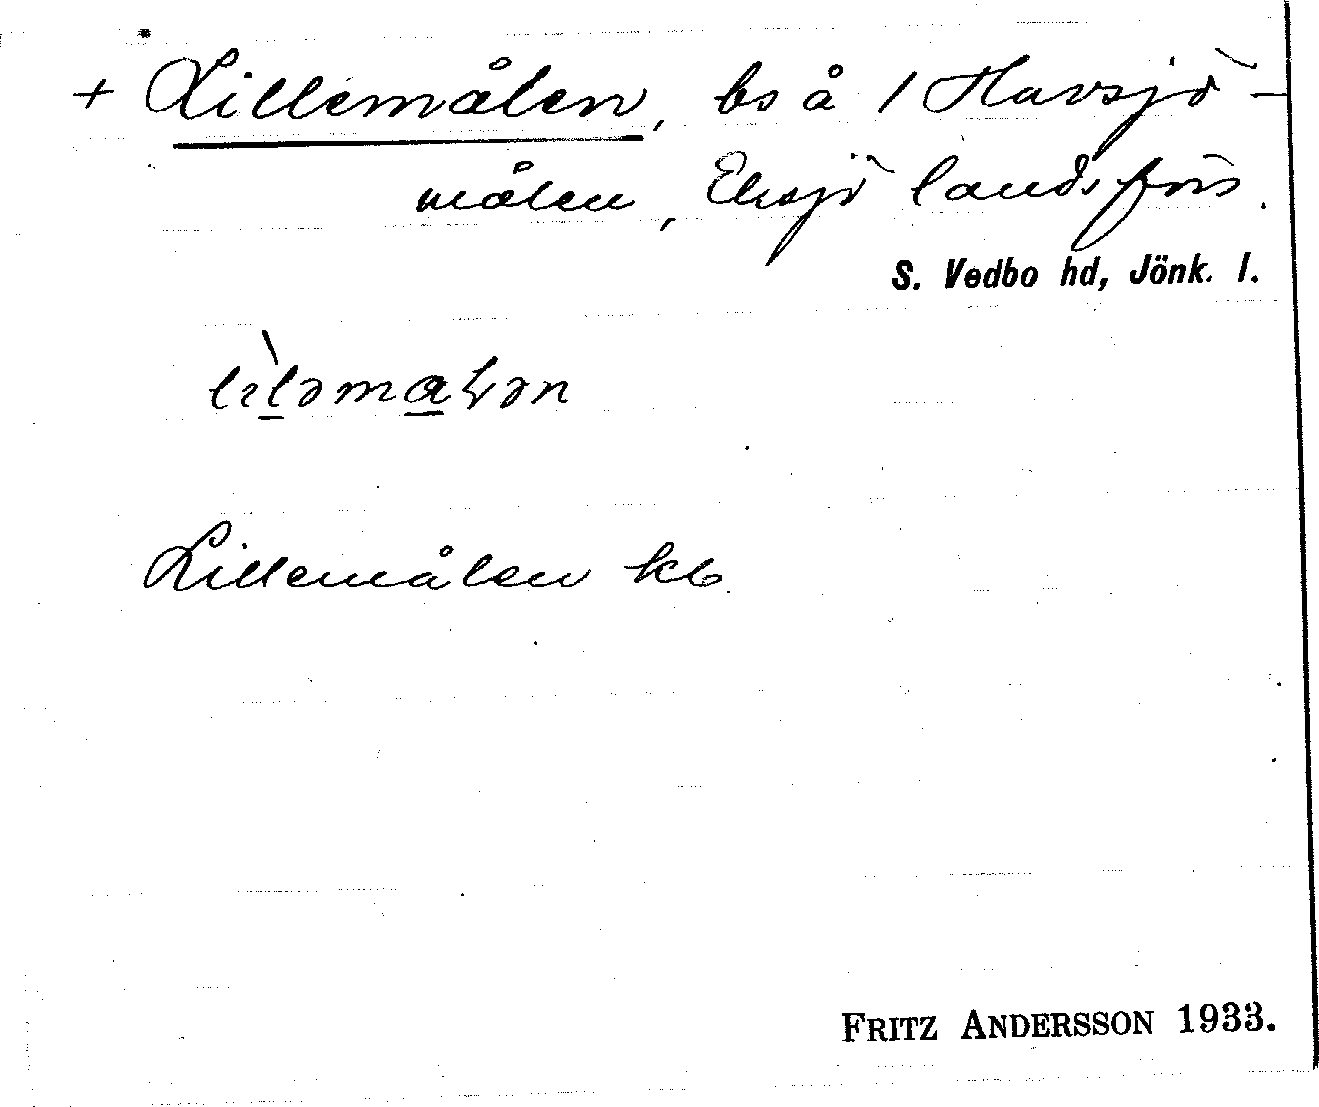 + Lillemålen, bs å 1 Havsjö-
målen, Eksjö landsförs.
S. Vedbo hd, Jönk. l.
Lillemålen kb
FRITZ ANDERSSON 1933.